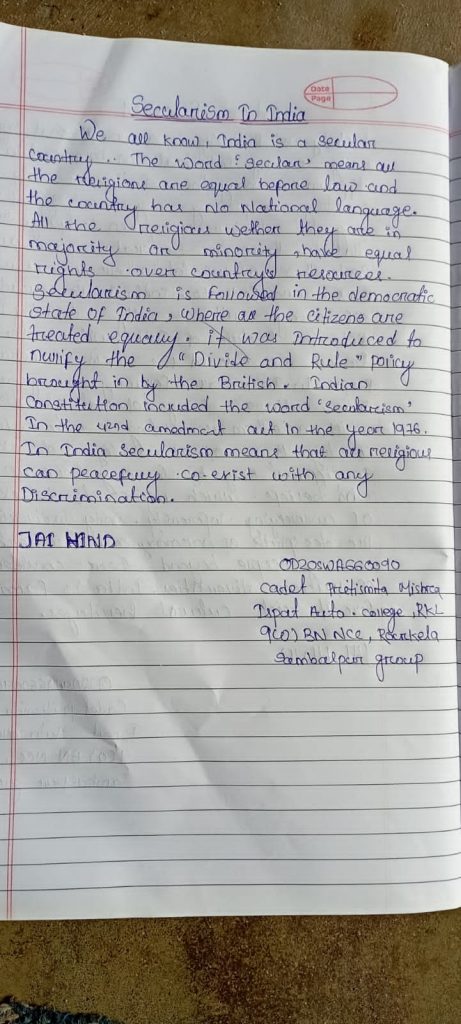 Date
Page
Secularism In India
We all know, India is a secular
country.. The word 'Secular' means all
the religions are equal before law and
the country has no National language.
All the religious wether they are in
majority or minority, have equal
rights over country's resources.
Secularism is followed in the democratic
state of India, where all the citizens are
treated equally. it was introduced to
nullify the "Divide and Rule" policy
brought in by the British. Indian
Constitution included the word 'Secularism'
In the 42nd amedment act In the year 1976.
In India Secularism means that all religious
can peacefully co-exist with any
Discrimination.
JAI HIND
OD20SWA660090
Cadet Pritismita Mishra
Ispat Auto. college, RKL
9(O) BN NCC, Rourkela
Sambalpur group